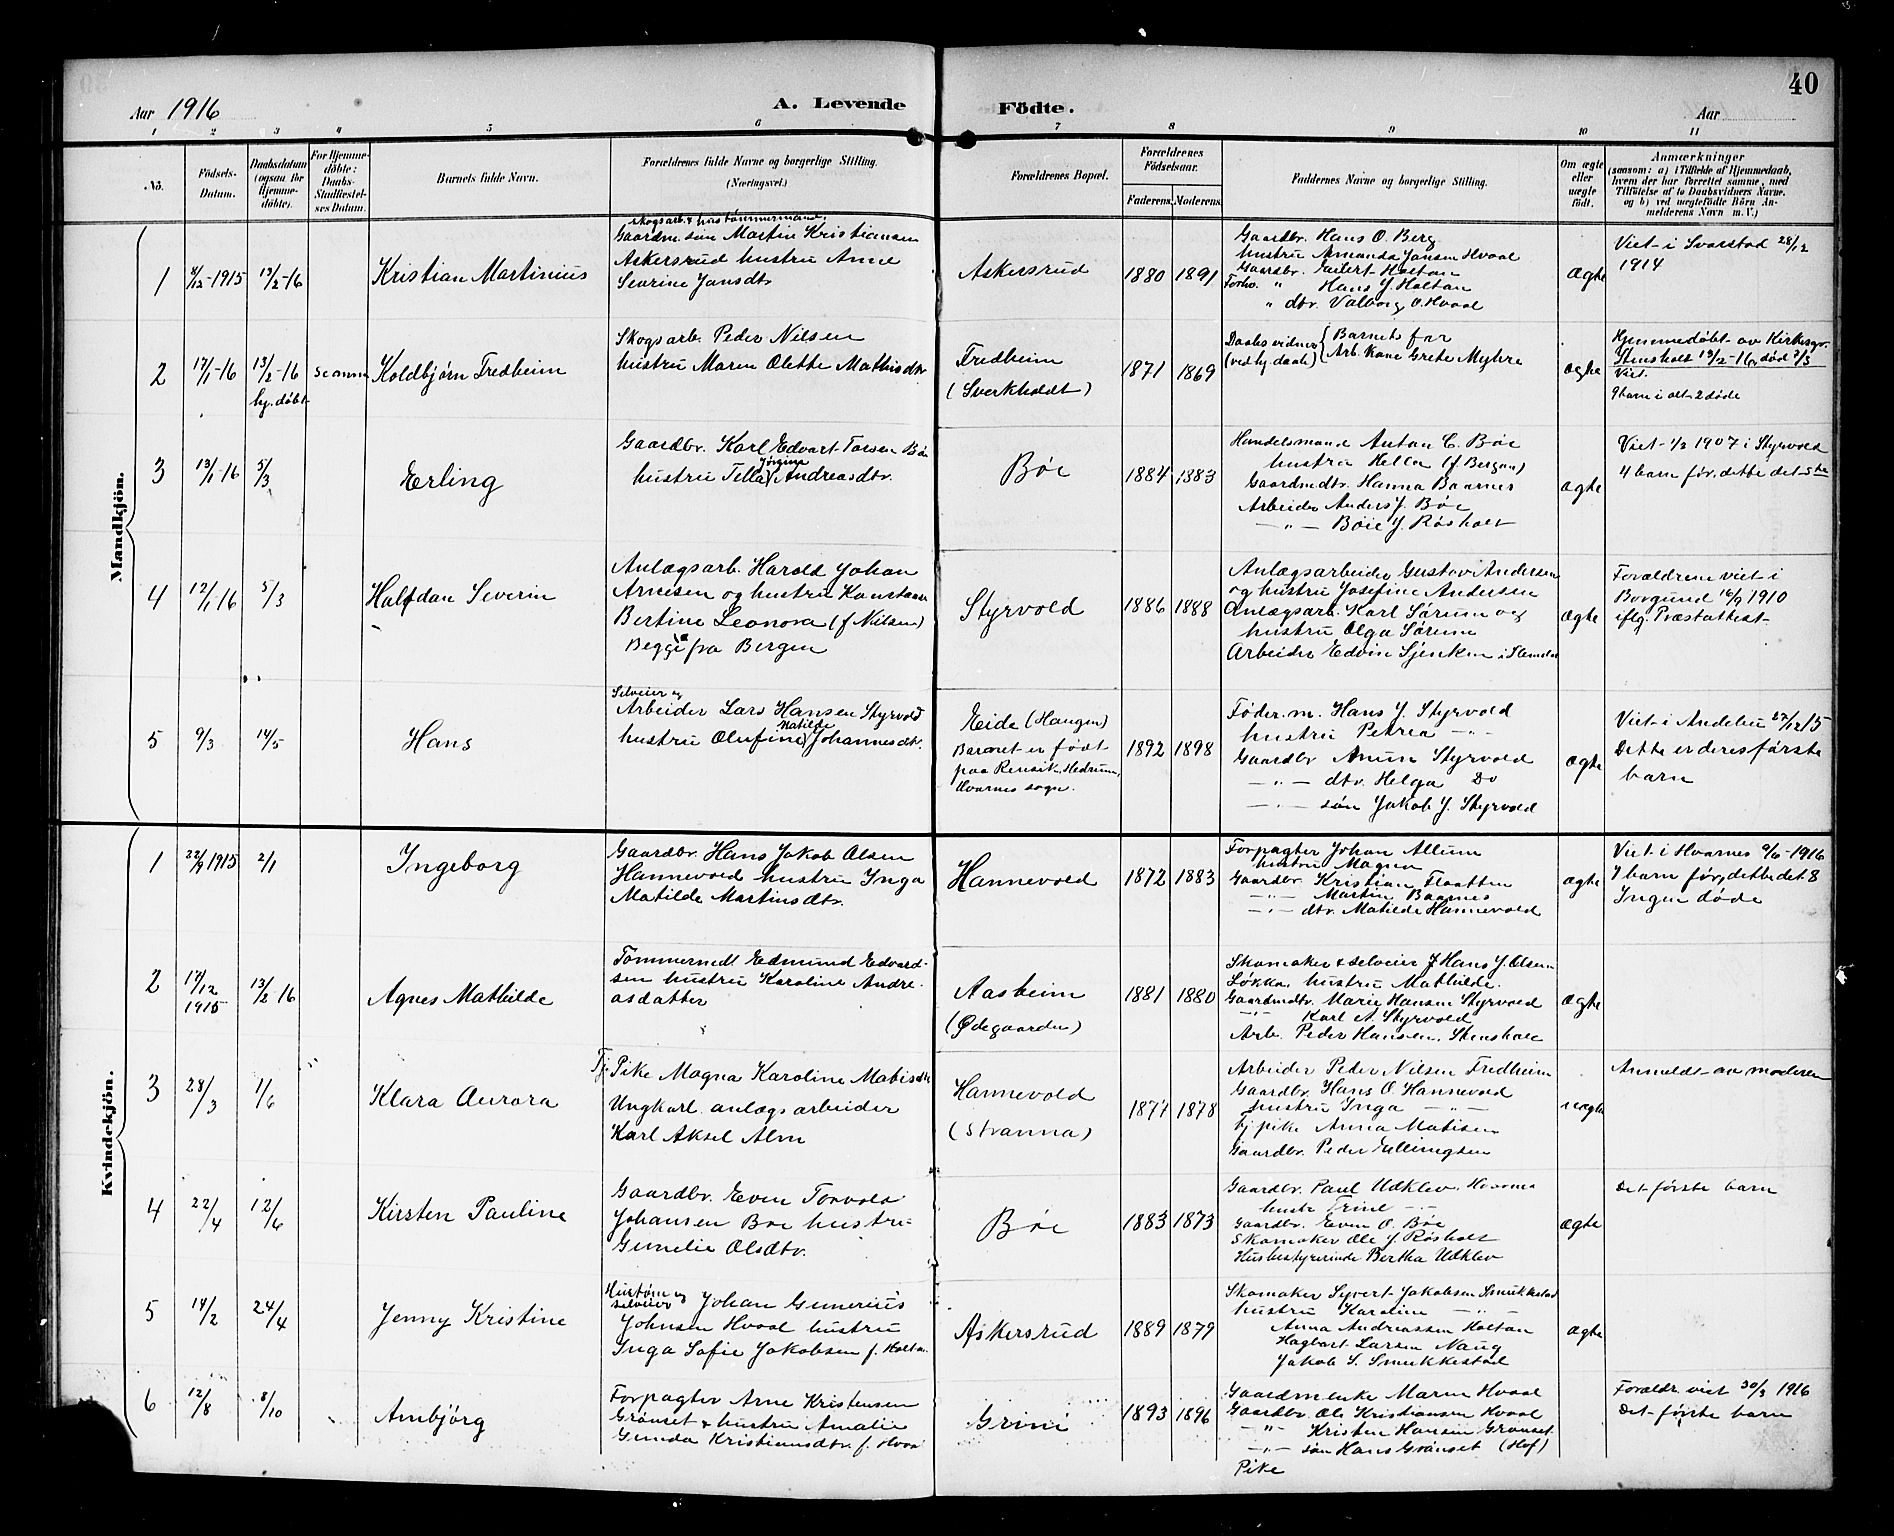 40
Aar 1916
A. Levende Födte.
Aar
1 2 3 4 5 6 7 8 9 10 11
No.
Födsels-Datum.
Daabsdatum (ogsaa for Hjemme-döbte).
For Hjemme-döbte: Daabs-Stadfæstel-ses Datum.
Barnets fulde Navn.
Forældrenes fulde Navne og borgerlige Stilling. (Næringsvei.)
Forældrenes Bopæl.
Forældrenes Födselsaar.
Faderens. Moderens.
Faddernes Navne og borgerlige Stilling.
Om ægte eller uægte födt.
Anmærkninger
(saasom: a) i Tilfælde af Hjemmedaab, hvem der har forrettet samme, med Tilföielse af to Daabsvidners Navne. og b) ved uægtefödte Börn An-melderens Navn m. V.)
Mandkjön.
1
8/12-1915
13/2-16
Kristian Martinius
skogsarb. & hustömmermand.
Gaardm. sön Martin Kristiansen
Askersrud hustru Anne
Sevrine Jansdtr
Askersrud
1880 1891
Gaardbr. Hans O. Berg
hustru Amanda Jansen Hvaal
Gaardbr. Eilert Holtan
Forhv. " Hans J. Holtan
" dtr. Valborg O. Hvaal
Ægte
Viet i Svarstad 28/12
1914
2
17/1-16
13/2-16
hj. døbt
samme
Koldbjørn Fredheim
Skogsarb. Peder Nilsen
hustru Maren Olette Mathisdtr
Fredheim
(Sverkholdt)
1871 1869
Daabsvidner (ved hj. daab) { Barnets far
Arb. kone Grete Myhre
ægte
Hjemmedøbt av Kirkesgr.
Stensholt 13/2-16, død 7/3
Viet.
9 barn i alt 2 døde
3
13/1-16
5/3
Erling
Gaardbr. Karl Edvart Torsen Bøe
hustru Tella Jörgine Andreasdtr.
Bøe
1884 1883
Handelsmand Anton C. Bøe
hustru Hella (f. Bergan)
Gaardmdtr. Hanna Baarnes
Arbeider Anders J. Bøe
— " — Böie J. Røsholt
ægte
Viet 1/2 1907 i Styrvold
4 barn før, dette det 5te
4
12/1-16
5/3
Halfdan Severin
Anlægsarb. Harold Johan
Arnesen og hustru Konstanse
Bertine Leonora (f. Nilsen)
Begge fra Bergen
Styrvold
1886 1888
Anlægsarbeider Gustav Andersen
og hustru Josefine Andersen
Anlægsarb. Karl Sørum og
hustru Olga Sørum
Arbeider Edvin Sjenken
ægte
Forældrene viet i
Borgund 16/9 1910
iflg. Præstattest
5
9/3
14/5
Hans
Selveier og
Arbeider Lars Hansen Styrvold
hustru Olufine Matilde Johannesdtr.
Eide (Haugen)
Barnet er født
paa Rensik, Hedrum,
Hvarnes sogn.
1892 1898
Føder.m. Hans J. Styrvold
hustru Petrea — " —
Gaardbr Anun Styrvold
— " — dtr. Helga Do
— " — søn Jakob J. Styrvold
ægte
Viet i Andebu 27/12 15
Dette er deres første
barn
Kvindekjön.
1
22/9 1915
2/1
Ingeborg
Gaardbr. Hans Jakob Olsen
Hannevold hustru Inga
Matilde Martinsdtr.
Hannevold
1872 1883
Forpagter Johan Allum
hustru Magna
Gaardbr. Kristian Flaatten
— " — Martin Baarnes
— " — dtr. Matilde Hannevold
ægte
Viet i Hvarnes 9/6-1916
7 barn før, dette det 8
Ingen døde
2
17/12
1915
13/2-16
Agnes Mathilde
Tømmermd Edmund Edvard-
sen hustru Karoline Andre-
asdatter
Aasheim
(Ødegaarden)
1881 1880
Skomaker & selveier Hans J. Olsen
Løkka hustru Mathilde.
Gaardmdtr. Marie Hansen Styrvold
— " — Karl A. Styrvold
Arb. Peder Hansen. Stensholt
ægte
3
28/3
1/6
Klara Aurora
Tj. Pike Magna Karoline Matisdtr
Ungkarl. anlægsarbeider
Karl Aksel Alm
Hannevold
(Stranna)
1877 1878
Arbeider Peder Nilsen Fredheim
Gaardbr. Hans O. Hannevold
hustru Inga — " —
Tj. pike Anna Matisen
Gaardbr. Peder Ellingsen
uægte
Anmeldt av moderen
4
22/4
12/6
Kirsten Pauline
Gaardbr. Even Torvald
Johansen Bøe hustru
Gunelie Olsdtr.
Bøe
1883 1873
Gaardbr. Paul Udklev,
hustr Trine — " —
Gaardbr. Even O. Bøe
Skomaker Ole J. Røsholt
Husbestyrerinde Bertha Udklev
ægte
Det første barn
5
14/2
24/4
Jenny Kristine
Hustøm og
selveier Johan Gunerius
Johnsen Hvaal hustru
Inga Sofie Jakobsen f. Holtan
Askersrud
1889 1879
Skomaker Syvert Jakobsen Smukkestad
hustru Karoline — " —
Anna Andreassen Holtan
Hagbart Larsen Naug
Jakob S. Smukkestad
ægte
6
12/8
8/10
Ambjørg
Forpagter Arne Kristensen
Grønset & hustru Amalie
Gunda Kristiansdtr. f. Hvaal
Grini
1893 1896
Gaardmenke Maren Hvaal
Gaardbr. Ole Kristiansen Hvaal
— " — Kristen Hansen Grønset
— " — søn Hans Grønset (Hof)
Pike
Forældr. viet 30/3 1916
Det første barn